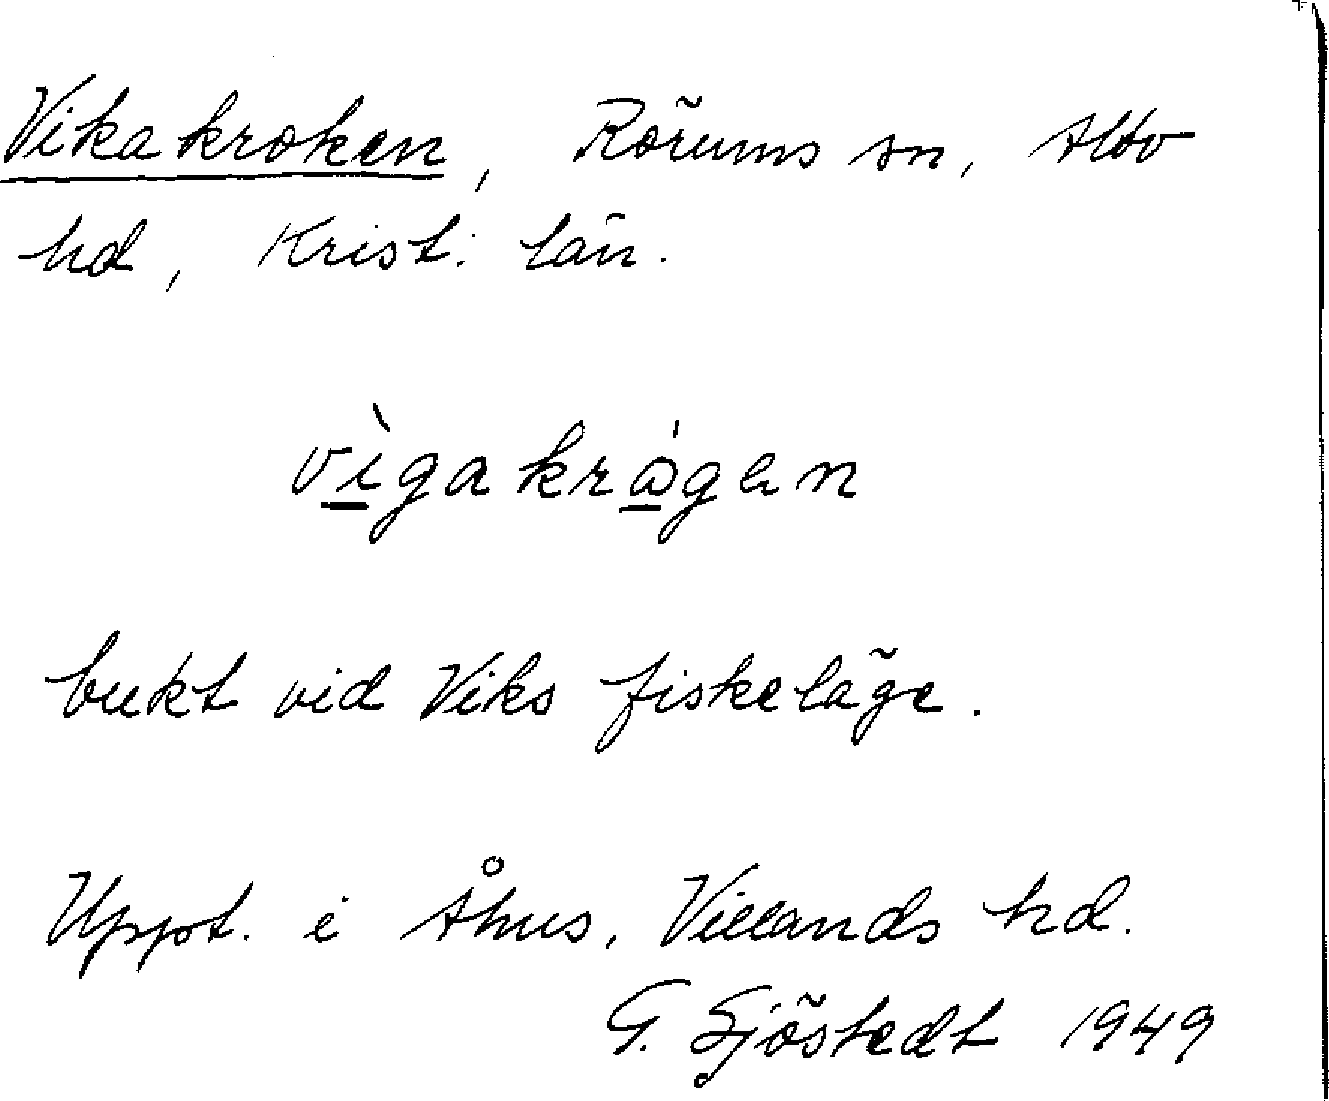 Vikakroken, Rörums sn, Albo
hd, Krist. län.
vìgakrågen
bukt vid Viks fiskeläge.
Uppt. i Åhus, Villands hd.
G. Sjöstedt 1949